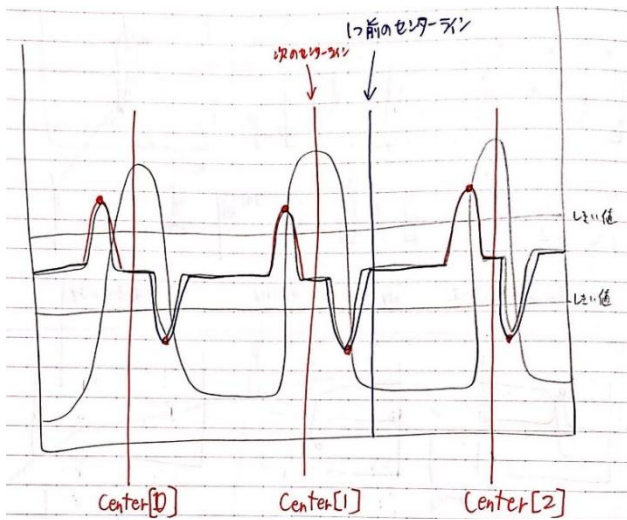 1つ前のセンターライン
次のセンターライン
しきい値
しきい値
Center[0]
Center[1]
Center[2]